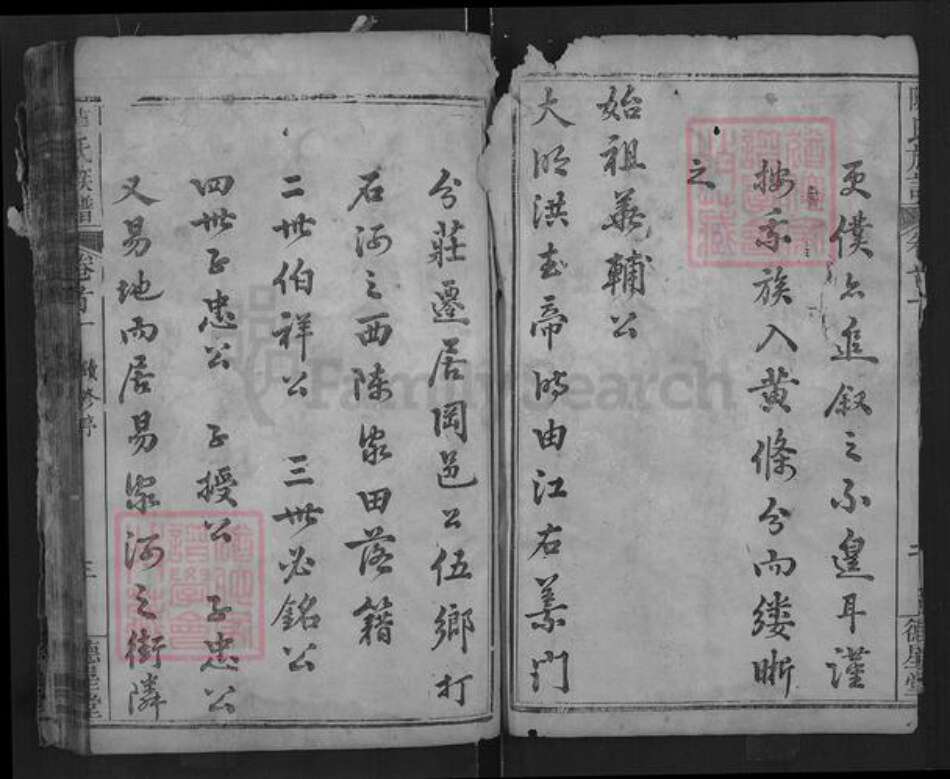 更僕亦追叙之不遑耳謹
按系族入黃條分而缕晰
之
始祖義輔公
大明洪武帝時由江右義門
分莊遷居岡邑公伍鄉打
石河之西陳家田落籍
二世伯祥公 三世必銘公
四世子忠公 子授公 子忠公
又易地而居易家河之街隣
氏族譜 卷首一 三
德星堂
FamilySearch